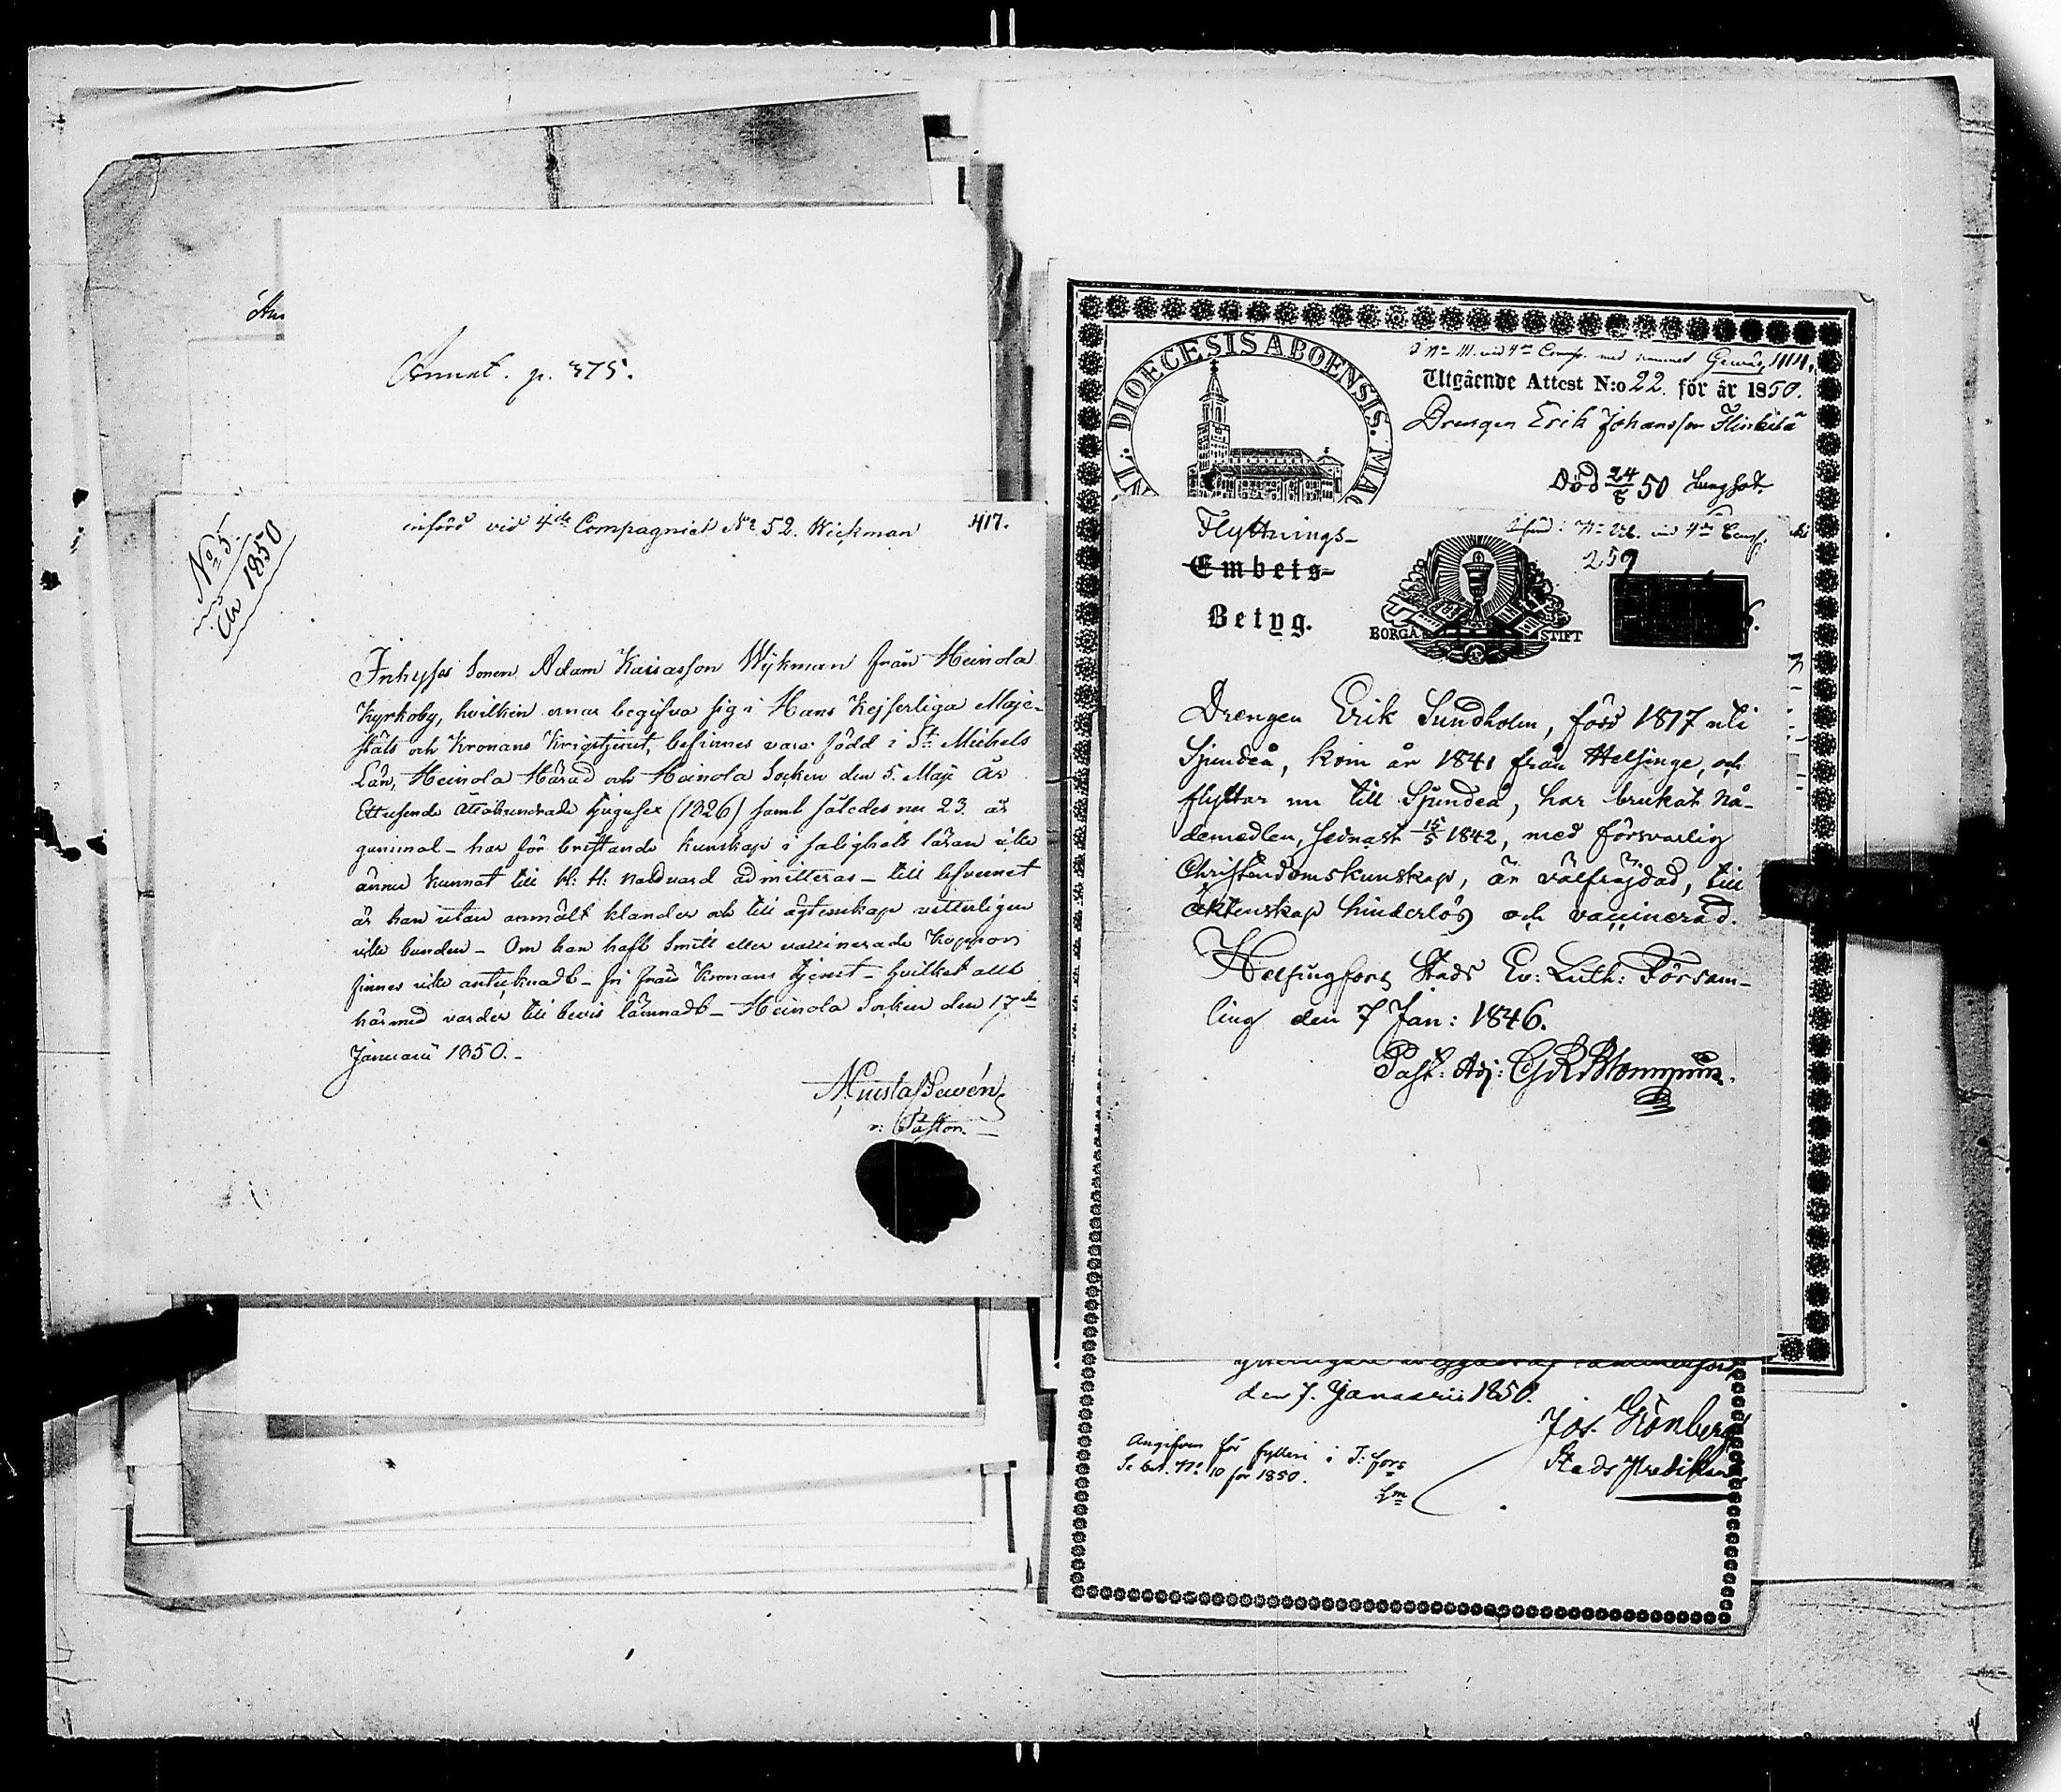 Annot. p. 375.
N:o 5.
År 1850
införd vid 4de Compagniet No 52. Wickman
417.
Inhyses Sonen Adam Kaisasson Wykman från Heinola
Kyrkoby, hvilken ernar begifva sig i Hans Kejserliga Maje-
stäts och Kronans Krigstjenst, befinnes vara född i St Michels
Län, Heinola Härad och Heinola Socken den 5. Maji År
Ettusende Åttahundrade tjugusex (1826) samt således nu 23 år
gammal – har för bristande kunskap i salighets läran icke
ännu kunnat till H: H: Nattvard admitteras – till lefvernet
är han utan anmält klander och till ägtenskap vetterligen
icke bunden – Om han haft Smitt eller vaccinerade Koppor
finnes icke antecknadt – fri från Kronans tjenst – hvilket allt
härmed varder till bevis lämnadt – Heinola Socken den 17de
Januarii 1850. –
v: Pastor. –
DIOECESIS ABOENSIS. MAG
I No 111. vid 4de Comp. med namnet
Utgående Attest N:o 22. för år 1850.
Drengen Erik Johansson
Död 24/5 50 Lungsot.
Flyttnings-
Embets-
Betyg.
BORGÅ STIFT
vid 4de Comp.
259
Drengen Erik Sundholm, född 1817 uti
Sjundeå, kom år 1841 från Helsinge, och
flyttar nu till Sjundeå, har brukat Nå-
demedlen, sednast 15/5 1842, med försvarlig
Christendomskunskap, är välfrejdad, till
äktenskap hinderlös och vaccinerad.
Helsingfors Stads Ev: Luth: Försam-
ling den 7 Jan: 1846.
Past: Adj:
den 7. Januarii 1850.
Jos. Grönberg
Stads Predikant
Angifven för fylleri i T:fors
Se bet. No 10 för 1850.